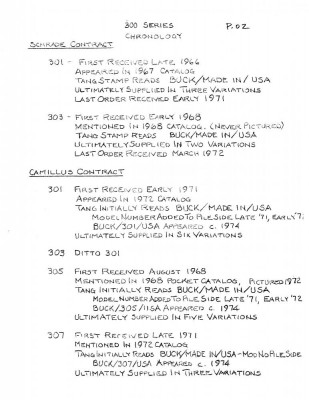 300 SERIES P.02
CHRONOLOGY
SCHRADE CONTRACT
301 - FIRST RECEIVED LATE 1966
APPEARED IN 1967 CATALOG
TANG STAMP READS BUCK/MADE IN/USA
ULTIMATELY SUPPLIED IN THREE VARIATIONS
LAST ORDER RECEIVED EARLY 1971
303 - FIRST RECEIVED EARLY 1968
MENTIONED IN 1968 CATALOG. (NEVER PICTURED)
TANG STAMP READS BUCK/MADE IN/USA
ULTIMATELY SUPPLIED IN TWO VARIATIONS
LAST ORDER RECEIVED MARCH 1972
CAMILLUS CONTRACT
301 FIRST RECEIVED EARLY 1971
APPEARED IN 1972 CATALOG
TANG INITIALLY READS BUCK/MADE IN/USA
MODEL NUMBER ADDED TO PILE SIDE LATE '71, EARLY '72
BUCK/301/USA APPEARED c. 1974
ULTIMATELY SUPPLIED IN SIX VARIATIONS
303 DITTO 301
305 FIRST RECEIVED AUGUST 1968
MENTIONED IN 1968 POCKET CATALOG, PICTURED 1972
TANG INITIALLY READS BUCK/MADE IN/USA
MODEL NUMBER ADDED TO PILE SIDE LATE '71, EARLY '72
BUCK/305/USA APPEARED c. 1974
ULTIMATELY SUPPLIED IN FIVE VARIATIONS
307 FIRST RECEIVED LATE 1971
MENTIONED IN 1972 CATALOG
TANG INITIALLY READS BUCK/MADE IN/USA - MOD NO PILE SIDE
BUCK/307/USA APPEARED c. 1974
ULTIMATELY SUPPLIED IN THREE VARIATIONS